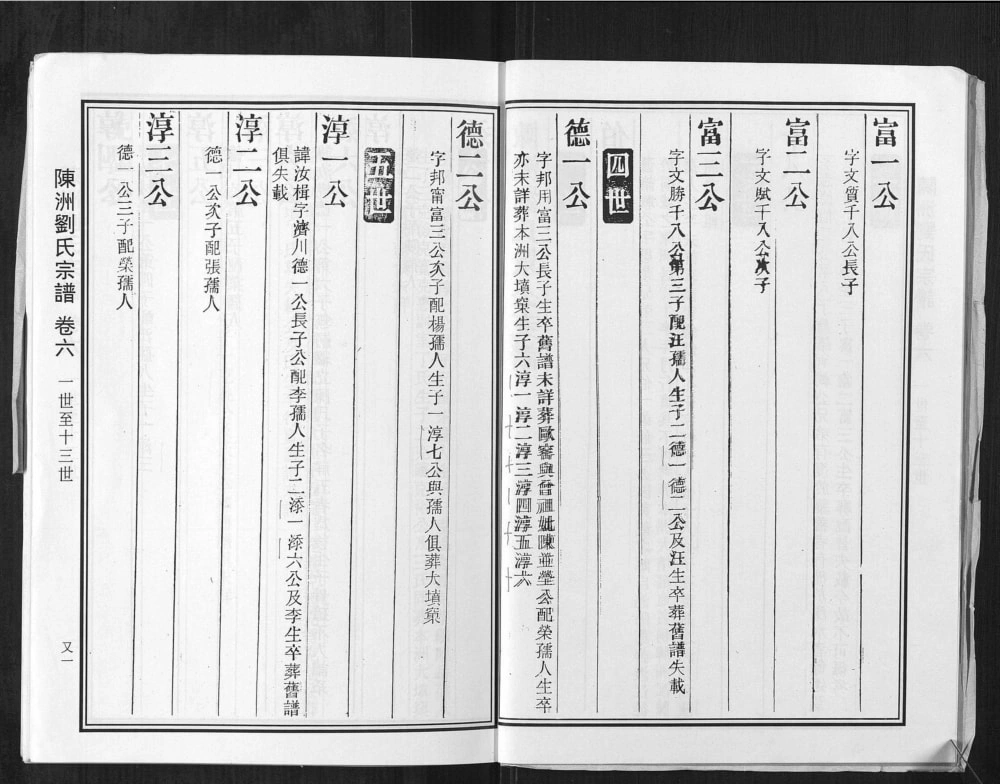 富一公
字文質千八公長子
富二公
字文賦千八公次子
富三公
字文勝千八公第三子配汪孺人生子二德一德二公及汪生卒葬舊譜失載
四世
德一公
字邦用富三公長子生卒舊譜未詳葬歐窰與曾祖妣陳並塋公配榮孺人生卒
亦未詳葬本洲大墳窠生子六淳一淳二淳三淳四淳五淳六
德二公
字邦甯富三公次子配楊孺人生子一淳七公與孺人俱葬大墳窠
五世
淳一公
諱汝楫字濟川德一公長子公配李孺人生子二添一添六公及李生卒葬舊譜
俱失載
淳二公
德一公次子配張孺人
淳三公
德一公三子配榮孺人
陳洲劉氏宗譜 卷六 一世至十三世 又一